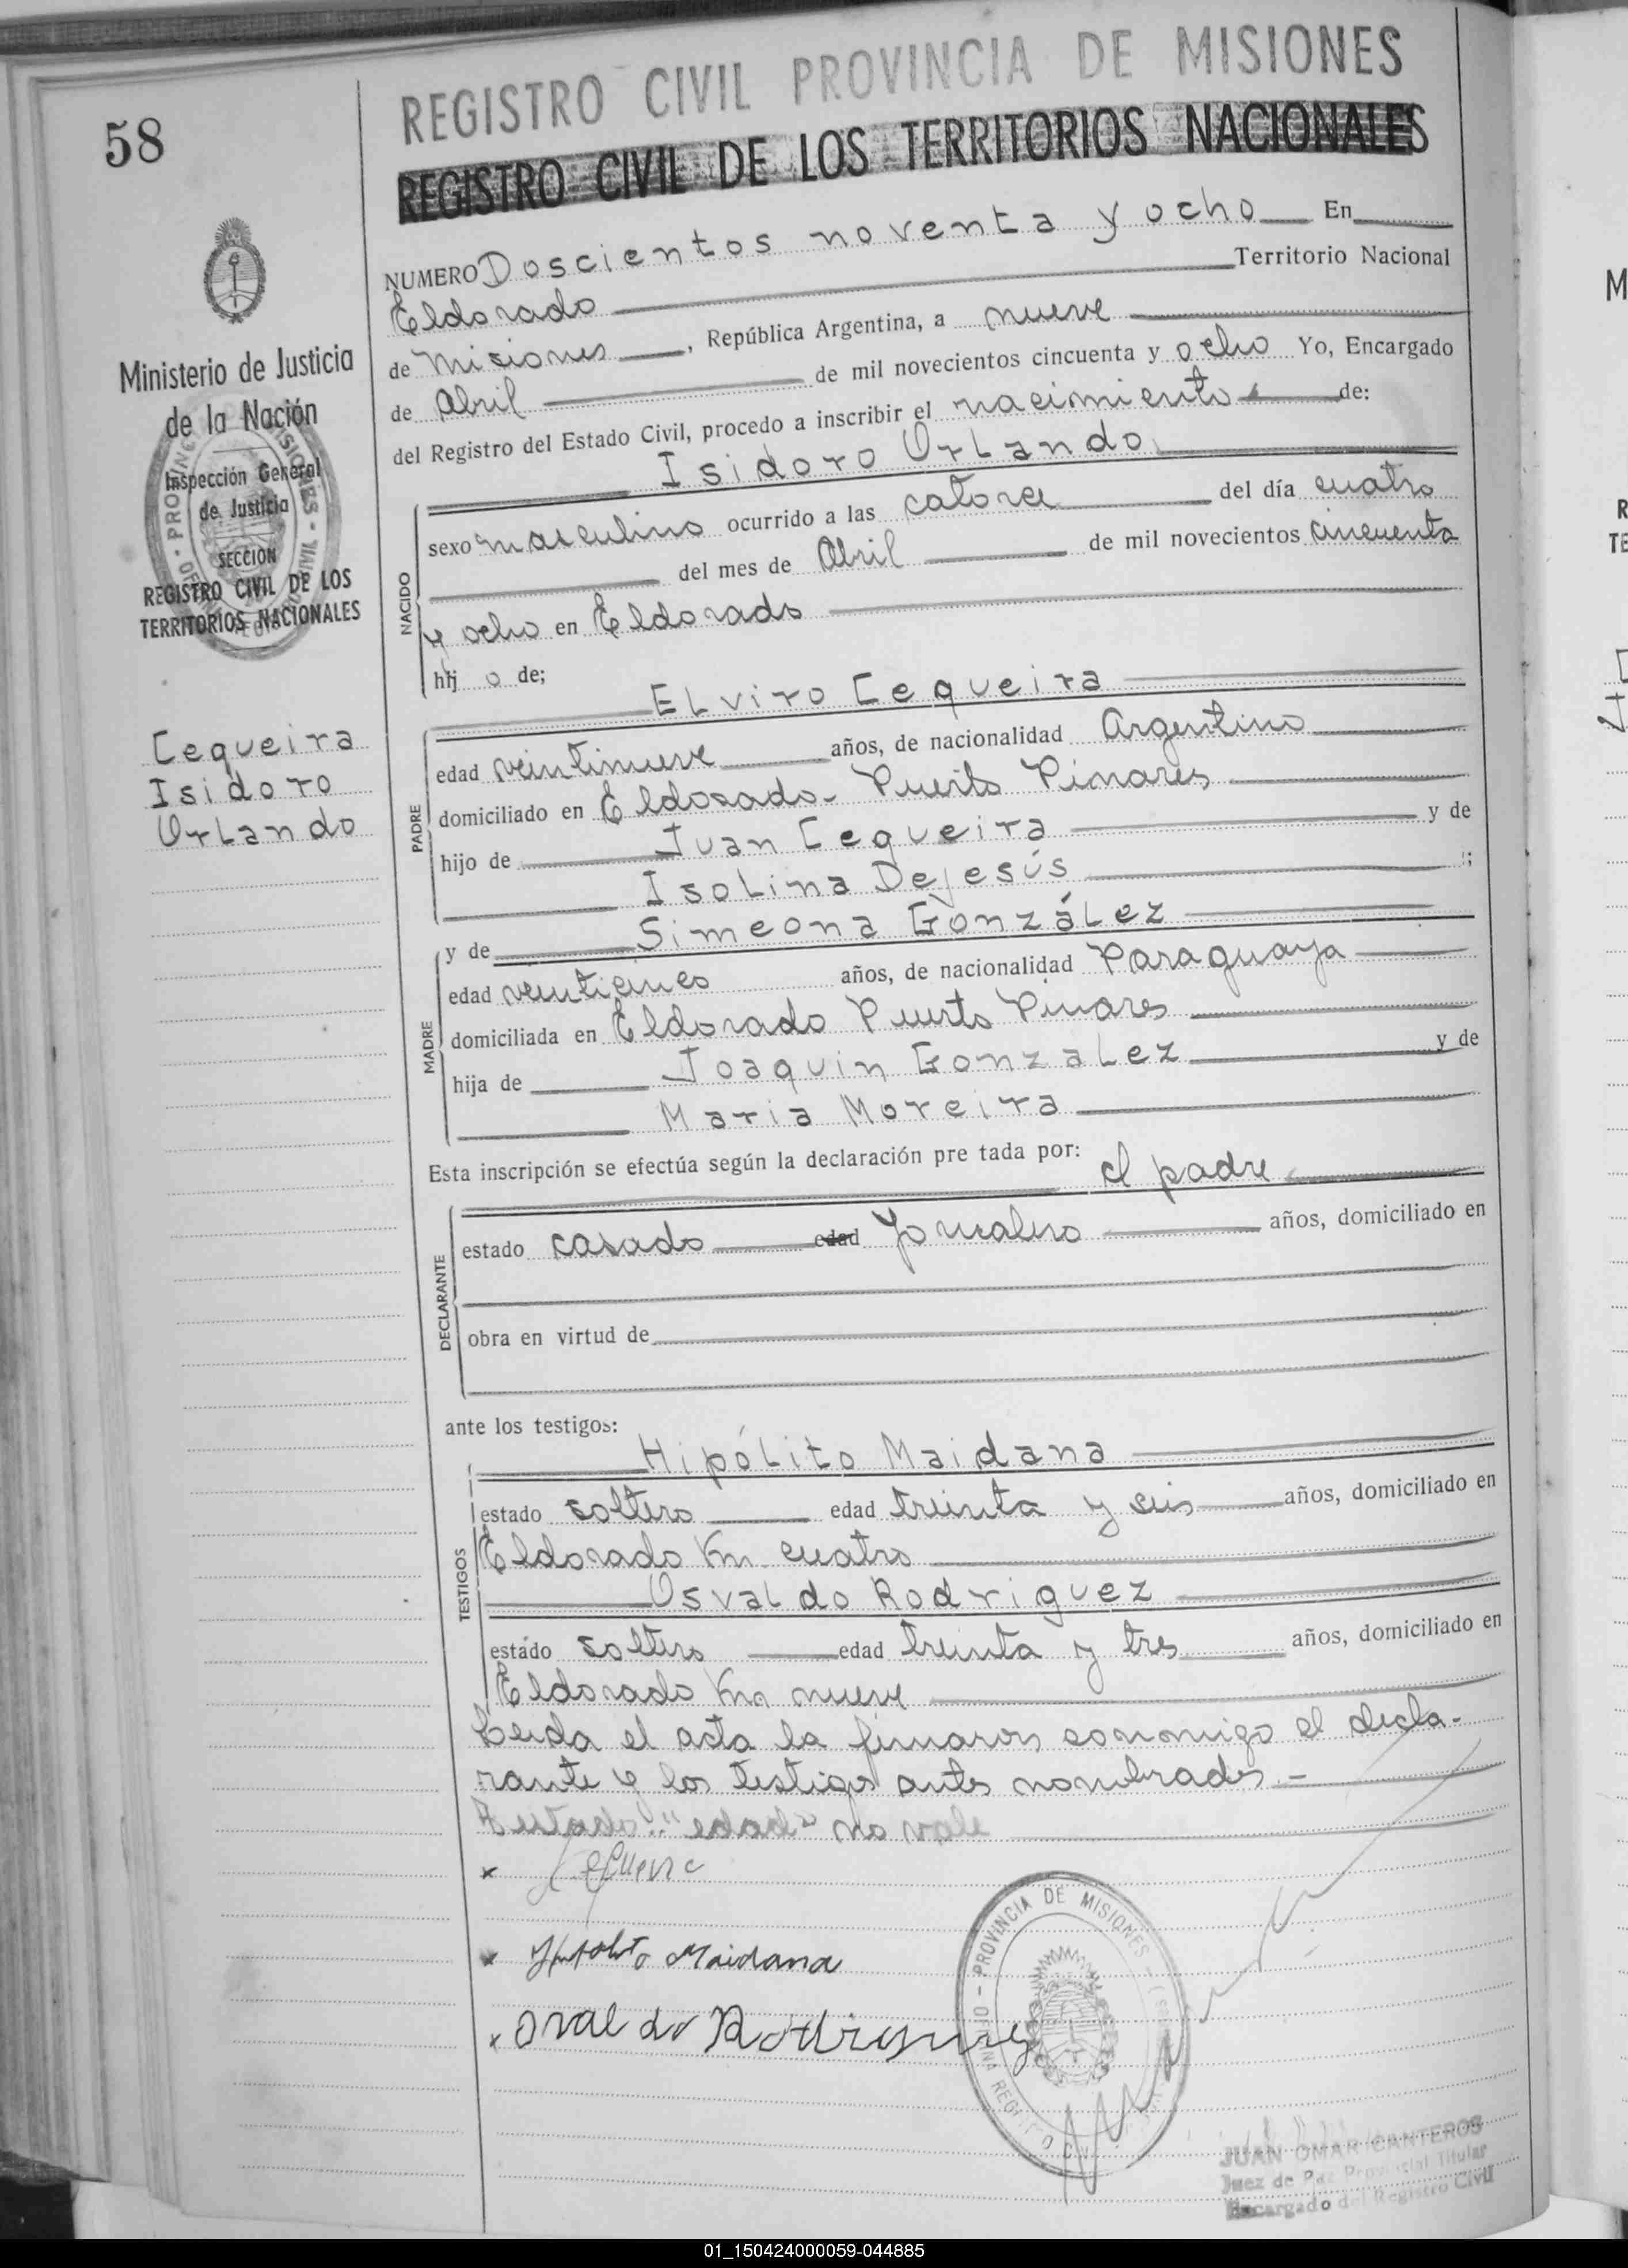 58
REGISTRO CIVIL PROVINCIA DE MISIONES
REGISTRO CIVIL DE LOS TERRITORIOS NACIONALES
Ministerio de Justicia
de la Nación
Inspección General
de Justicia
SECCION
REGISTRO CIVIL DE LOS
TERRITORIOS NACIONALES
Cequeira
Isidoro
Orlando
NUMERO Doscientos noventa y ocho En
Eldorado Territorio Nacional
de Misiones, República Argentina, a nueve
de Abril de mil novecientos cincuenta y ocho Yo, Encargado
del Registro del Estado Civil, procedo a inscribir el nacimiento de:
Isidoro Orlando
NACIDO
sexo masculino ocurrido a las catorce del día cuatro
del mes de Abril de mil novecientos cincuenta
y ocho en Eldorado
hij o de;
PADRE
Elviro Cequeira
edad veintinueve años, de nacionalidad Argentino
domiciliado en Eldorado- Puerto Pinares
hijo de Juan Cequeira y de
Isolina Dejesús ;
MADRE
y de Simeona González
edad años, de nacionalidad Paraguaya
domiciliada en Eldorado Puerto Pinares
hija de Joaquin Gonzalez y de
Maria Moreira
Esta inscripción se efectúa según la declaración pre tada por: el padre
DECLARANTE
estado casado edad años, domiciliado en
obra en virtud de
ante los testigos:
TESTIGOS
Hipólito Maidana
estado soltero edad treinta y seis años, domiciliado en
Eldorado Km. cuatro
Osvaldo Rodriguez
estado soltero edad treinta y tres años, domiciliado en
Eldorado Km nueve
Leida el acta la firmaron conmigo el decla-
rante y los testigos antes nombrados.-
"edad" no vale
x
x Hipolito Maidana
x Osvaldo Rodriguez
PROVINCIA DE MISIONES
JUAN OMAR CANTEROS
Juez de Paz Provincial Titular
Encargado del Registro Civil
01_150424000059-044885